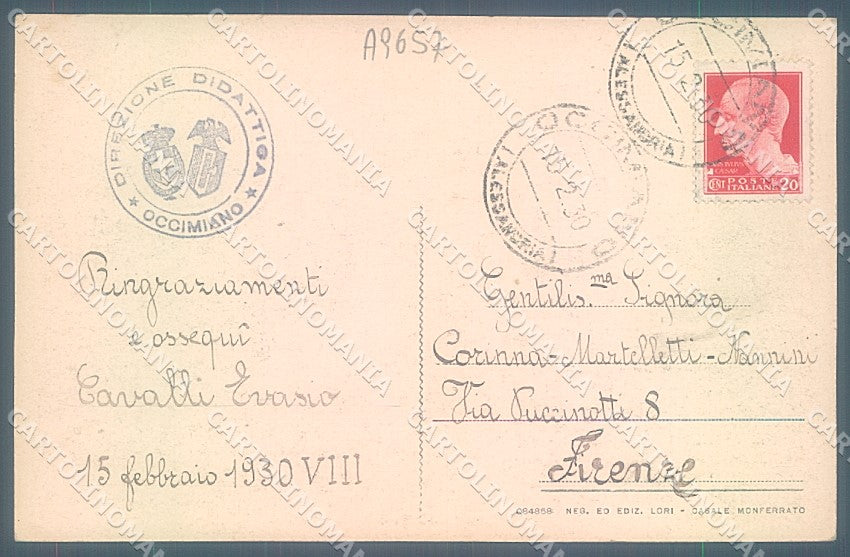 A9657
DIREZIONE DIDATTICA
★ OCCIMIANO ★
OCCIMIANO
15.2.30
(ALESSANDRIA)
15.2.30
(ALESSANDRIA)
CAESAR
CENT POSTE ITALIANE 20
Ringraziamenti
e ossequî
Cavalli Evasio
15 febbraio 1930 VIII
Gentilis.ma Signora
Corinna Martelletti-Nannini
Via Puccinotti 8
Firenze
NEG. ED EDIZ. LORI - CASALE MONFERRATO
CARTOLINOMANIA